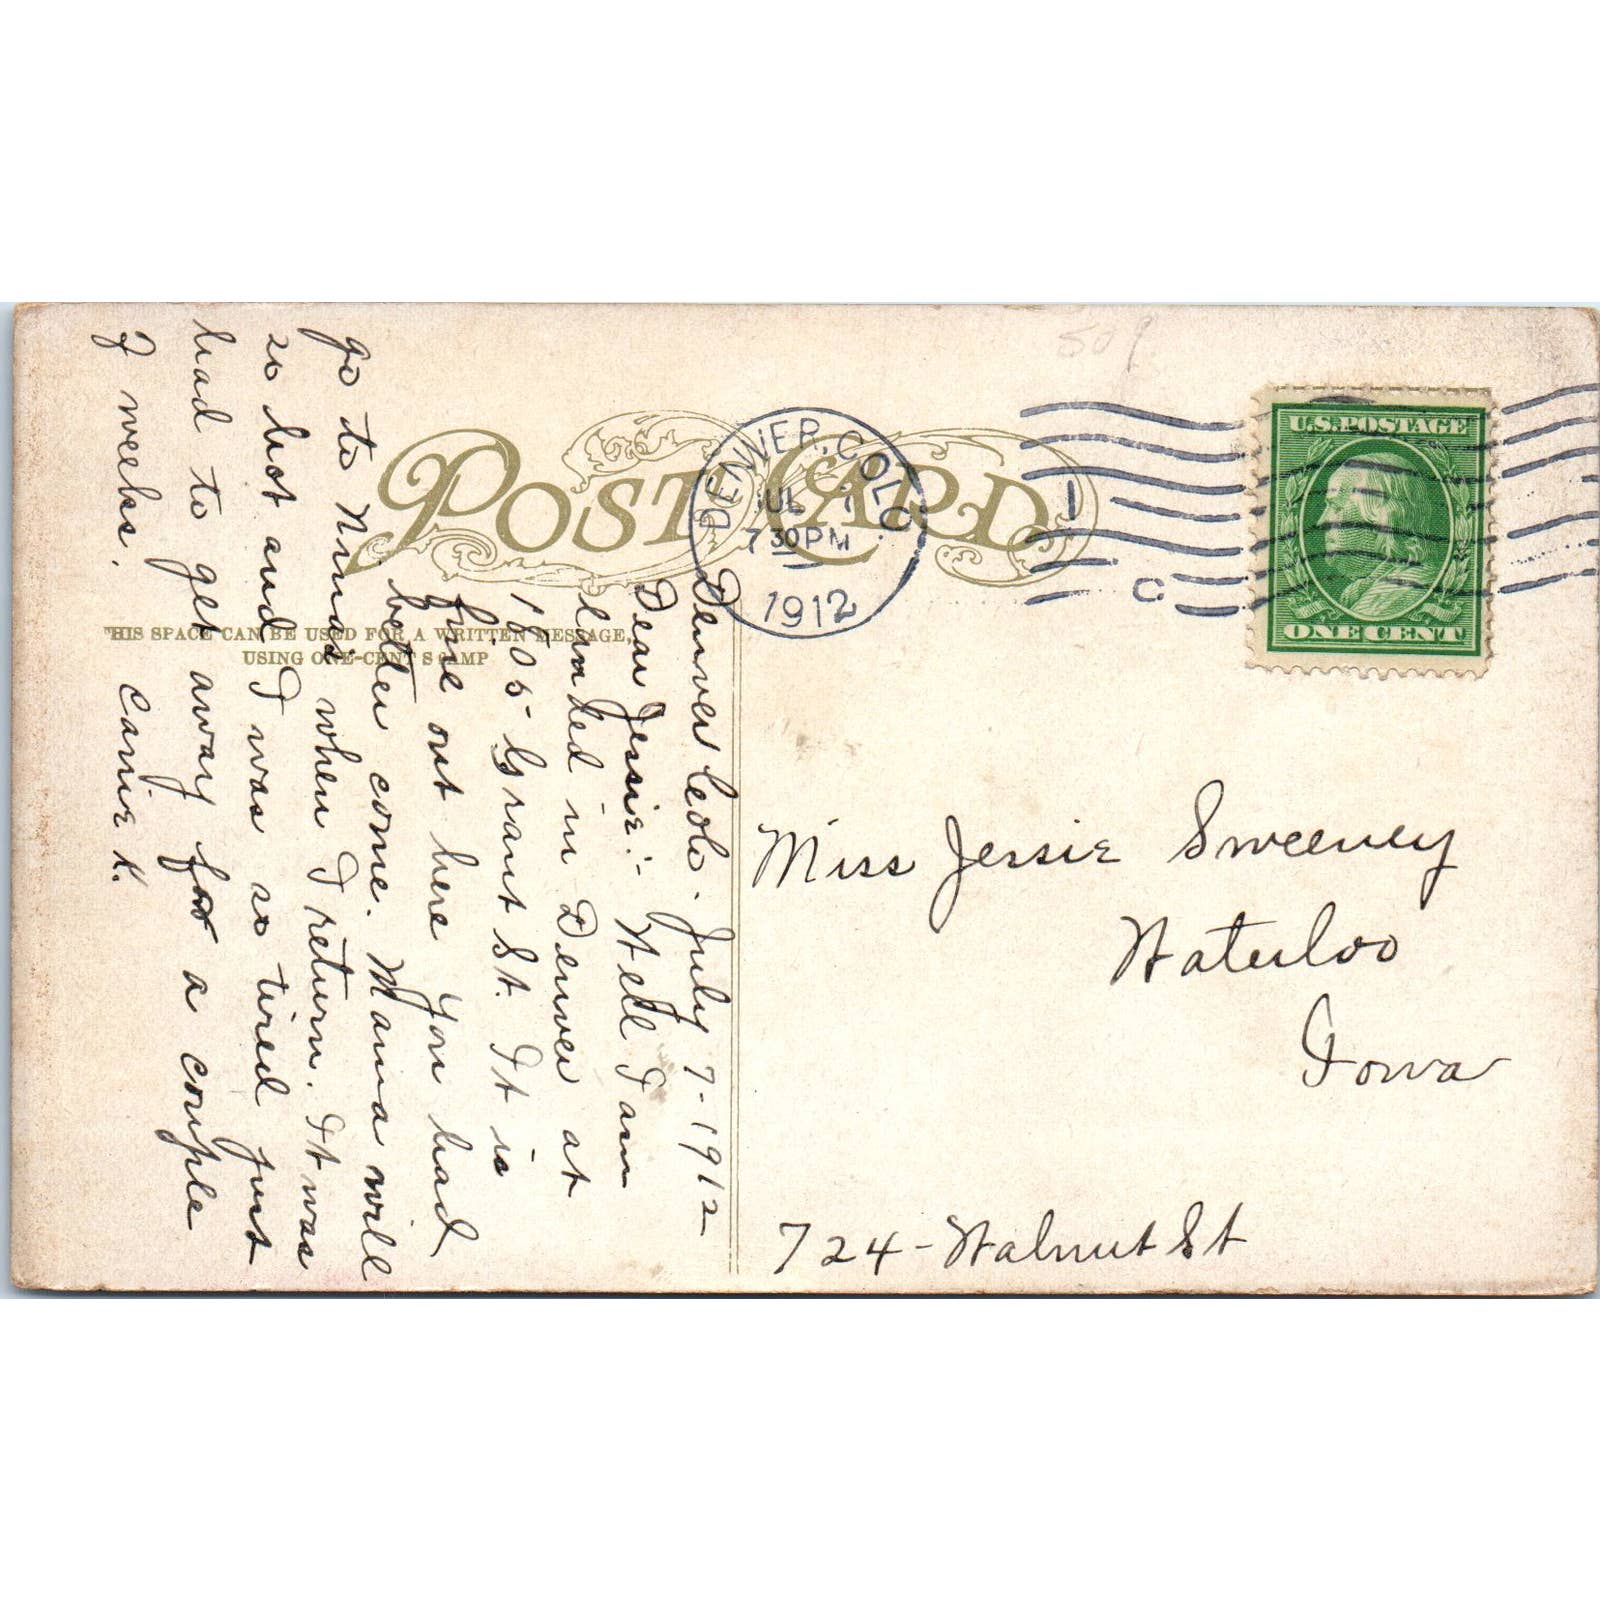 POST CARD
THIS SPACE CAN BE USED FOR A WRITTEN MESSAGE,
USING ONE-CENT STAMP
DENVER, COLO.
JUL 7
7 30 PM
1912
1
C
U.S. POSTAGE
ONE CENT
Denver Colo. July 7-1912
Dear Jessie:- Well I am
landed in Denver at
1805- Grant St. It is
fine out here you had
better come. Mama will
go to Nina's when I return. It was
so hot and I was so tired just
had to get away for a couple
of weeks. Carrie K.
Miss Jessie Sweeney
Waterloo
Iowa
724-Walnut St